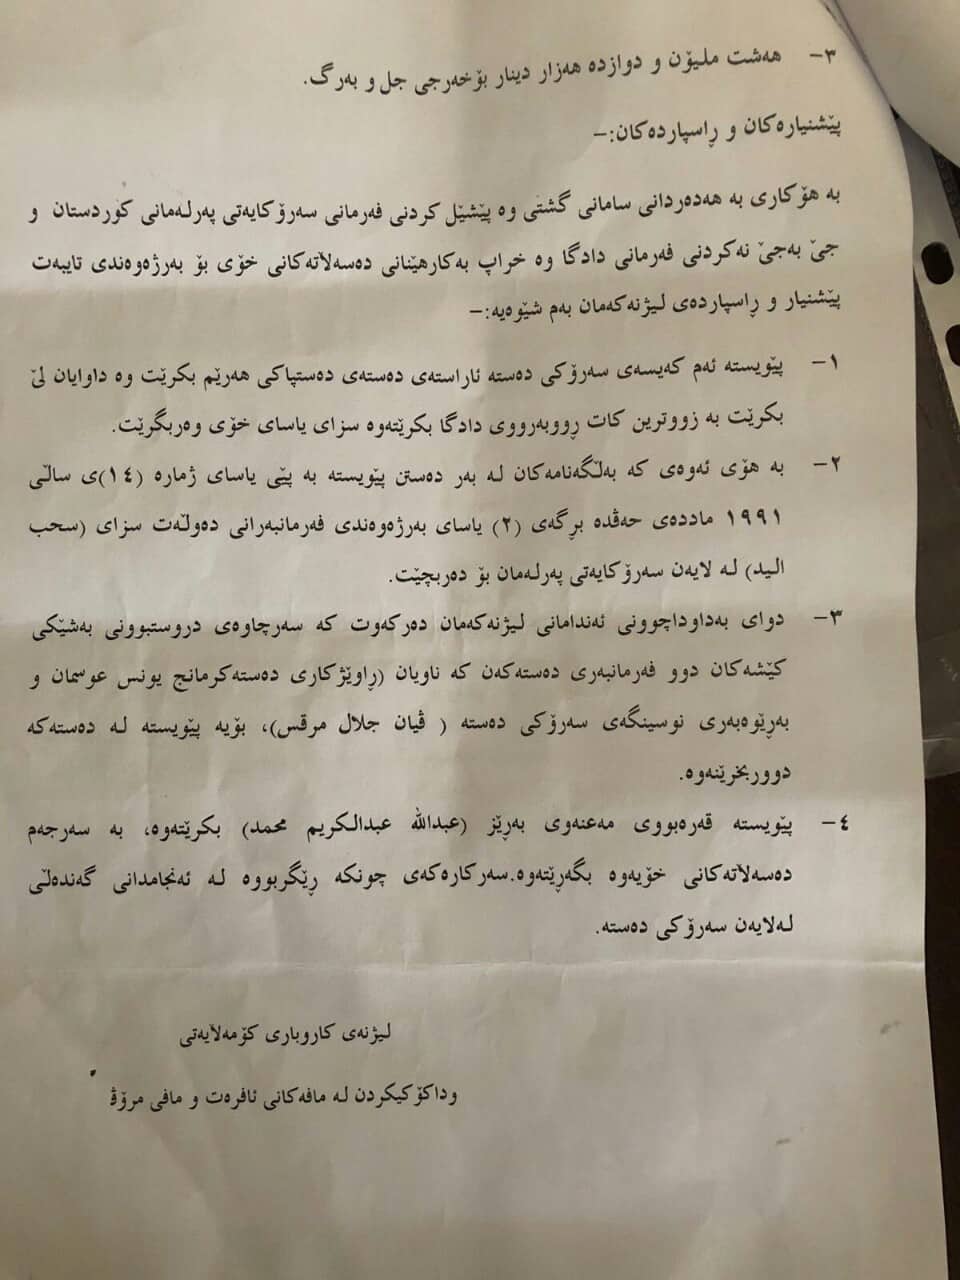 ٣- هەشت ملیۆن و دوازدە هەزار دینار بۆخەرجی جل و بەرگ.
پێشنیارەکان و ڕاسپاردەکان:-
بە هۆکاری بە هەدەردانی سامانی گشتی وە پێشێل کردنی فەرمانی سەرۆکایەتی پەرلەمانی کوردستان و
جێ بەجێ نەکردنی فەرمانی دادگا وە خراپ بەکارهێنانی دەسەڵاتەکانی خۆی بۆ بەرژەوەندی تایبەت
پێشنیار و ڕاسپاردەی لیژنەکەمان بەم شێوەیە:-
١- پێویستە ئەم کەیسەی سەرۆکی دەستە ئاراستەی دەستەی دەستپاکی هەرێم بکرێت وە داوایان لێ
بکرێت بە زووترین کات ڕووبەرووی دادگا بکرێتەوە سزای یاسای خۆی وەربگرێت.
٢- بە هۆی ئەوەی کە بەڵگەنامەکان لە بەر دەستن پێویستە بە پێی یاسای ژمارە (١٤)ی ساڵی
١٩٩١ ماددەی حەڤدە برگەی (٢) یاسای بەرژەوەندی فەرمانبەرانی دەوڵەت سزای (سحب
الید) لە لایەن سەرۆکایەتی پەرلەمان بۆ دەربچێت.
٣- دوای بەداوداچوونی ئەندامانی لیژنەکەمان دەرکەوت کە سەرچاوەی دروستبوونی بەشێکی
کێشەکان دوو فەرمانبەری دەستەکەن کە ناویان (ڕاوێژکاری دەستەکرمانج یونس عوسمان و
بەڕێوەبەری نوسینگەی سەرۆکی دەستە ( ڤیان جلال مرقس)، بۆیە پێویستە لە دەستەکە
دووربخرێنەوە.
٤- پێویستە قەرەبووی مەعنەوی بەڕێز (عبدالله عبدالکریم محمد) بکرێتەوە، بە سەرجەم
دەسەڵاتەکانی خۆیەوە بگەڕێتەوە.سەرکارەکەی چونکە ڕێگربووە لە ئەنجامدانی گەندەڵی
لەلایەن سەرۆکی دەستە.
لیژنەی کاروباری کۆمەڵایەتی
وداکۆکیکردن لە مافەکانی ئافرەت و مافی مرۆڤ